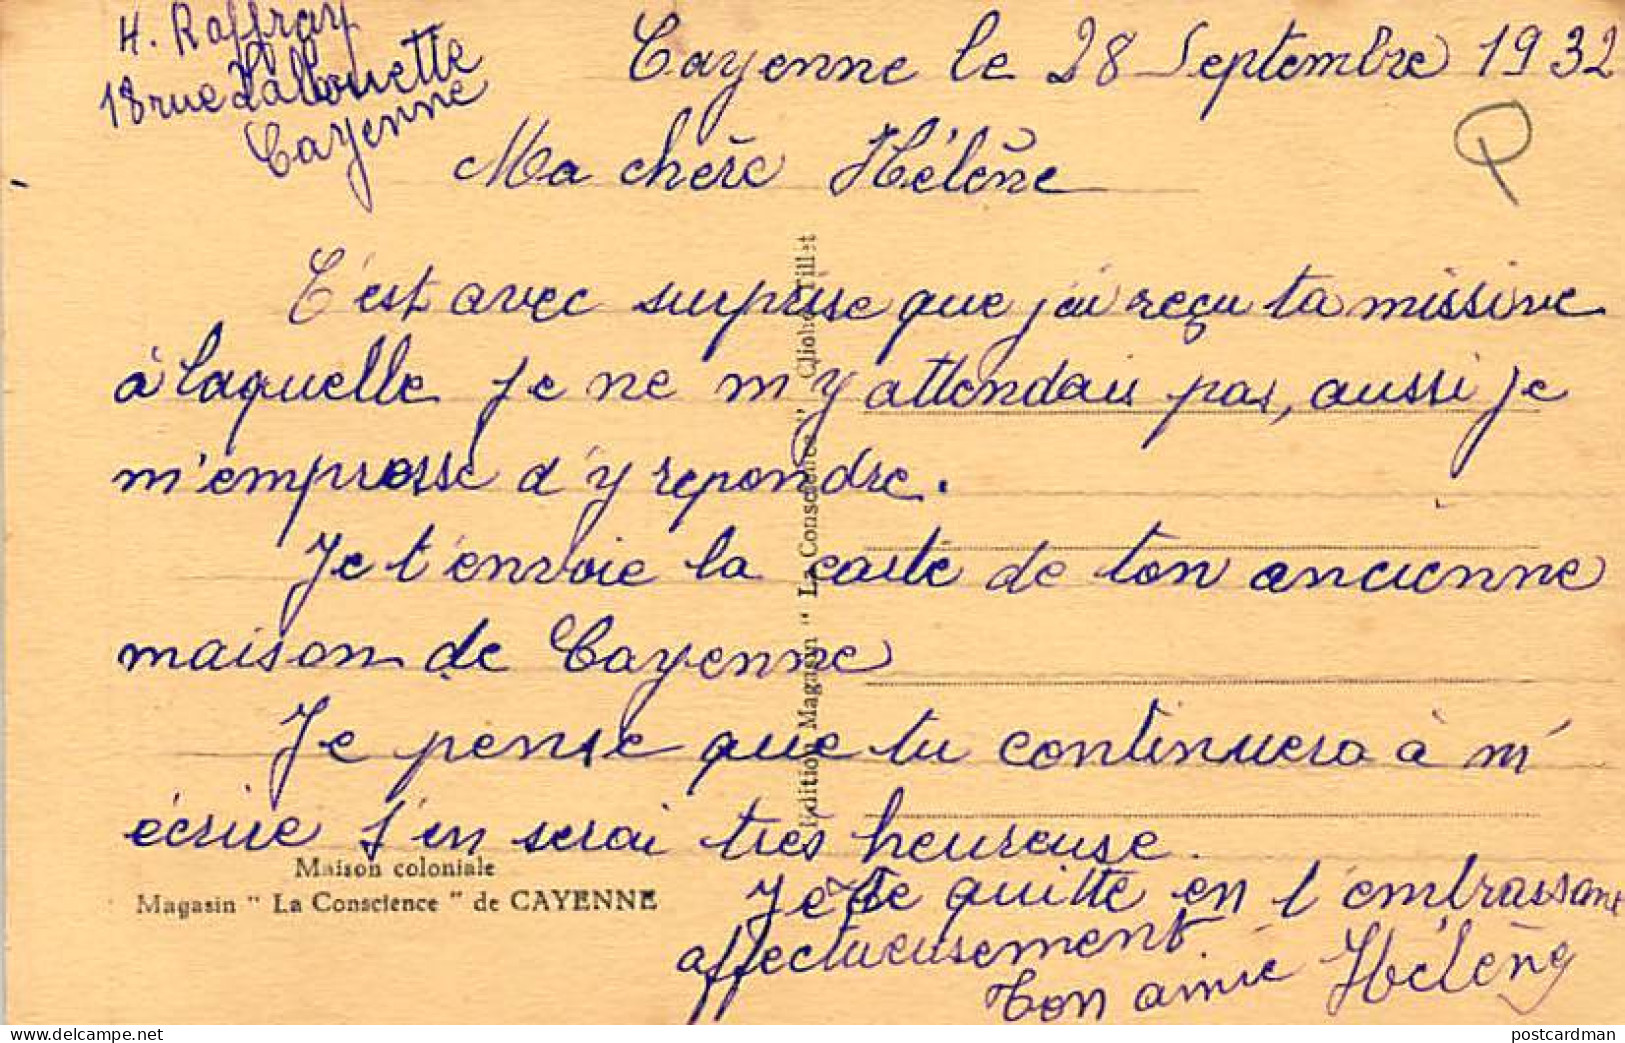 H. Raffray
18 rue Lallouette
Cayenne
Cayenne le 28 Septembre 1932
Ma chère Hélène
C'est avec surprise que j'ai reçu ta missive
à laquelle je ne m'y attendais pas, aussi je
m'empresse d'y repondre.
Je t'envoie la carte de ton ancienne
maison de Cayenne
Je pense que tu continuera à m'
écrire j'en serai très heureuse.
Je te quitte en t'embrassant
affectueusement
Ton amie Hélène
Maison coloniale
Magasin " La Conscience " de CAYENNE
Edition Magasin " La Conscience " Cliché Tillet
postcardman